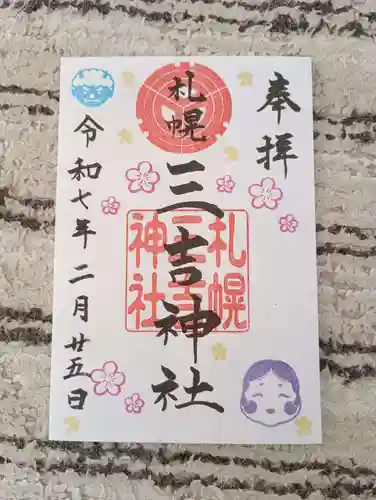 奉拝
札幌
三吉神社
札幌
三吉
神社
令和七年二月廿五日